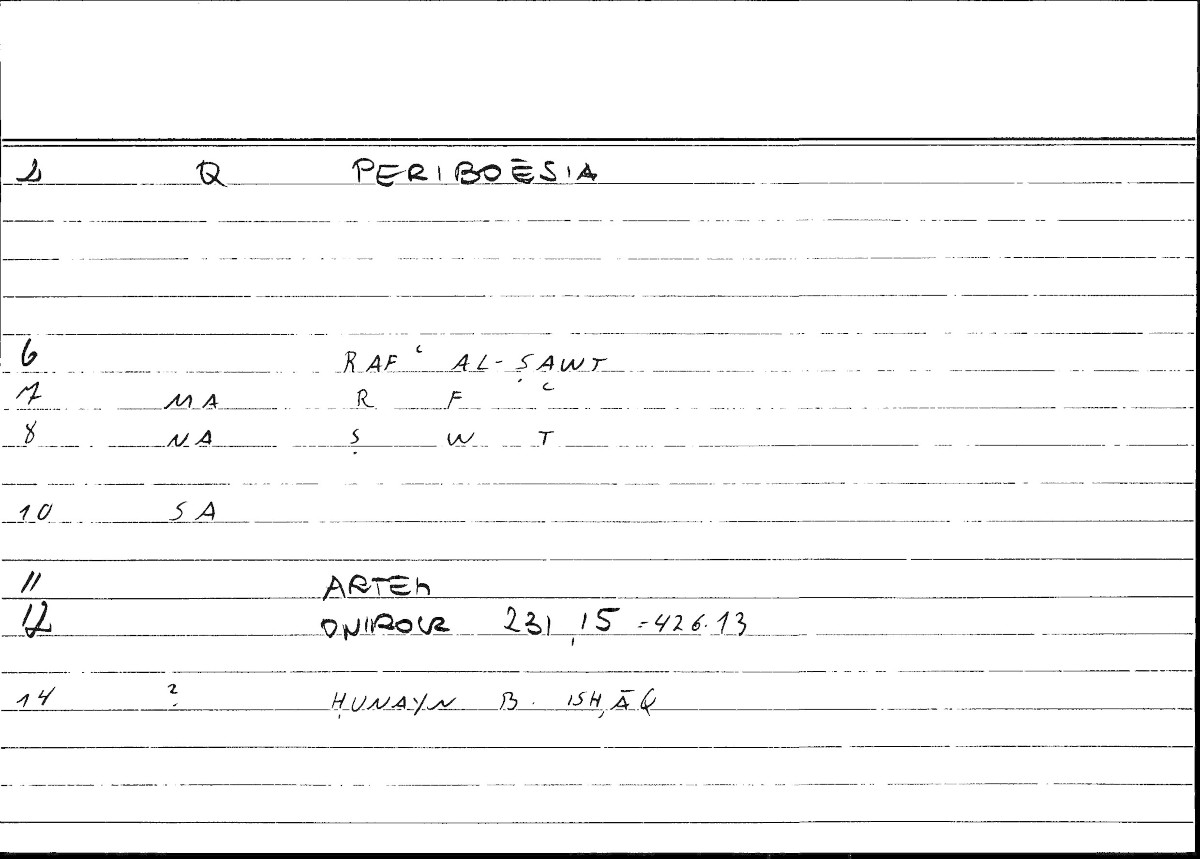 1 Q PERIBOĒSIA
6 RAFʿ AL-ṢAWT
7 MA R F ʿ
8 NA Ṣ W T
10 SA
11 ARTEM
12 ONIROCR 231,15 = 426.13
14 ? ḤUNAYN B. ISḤĀQ